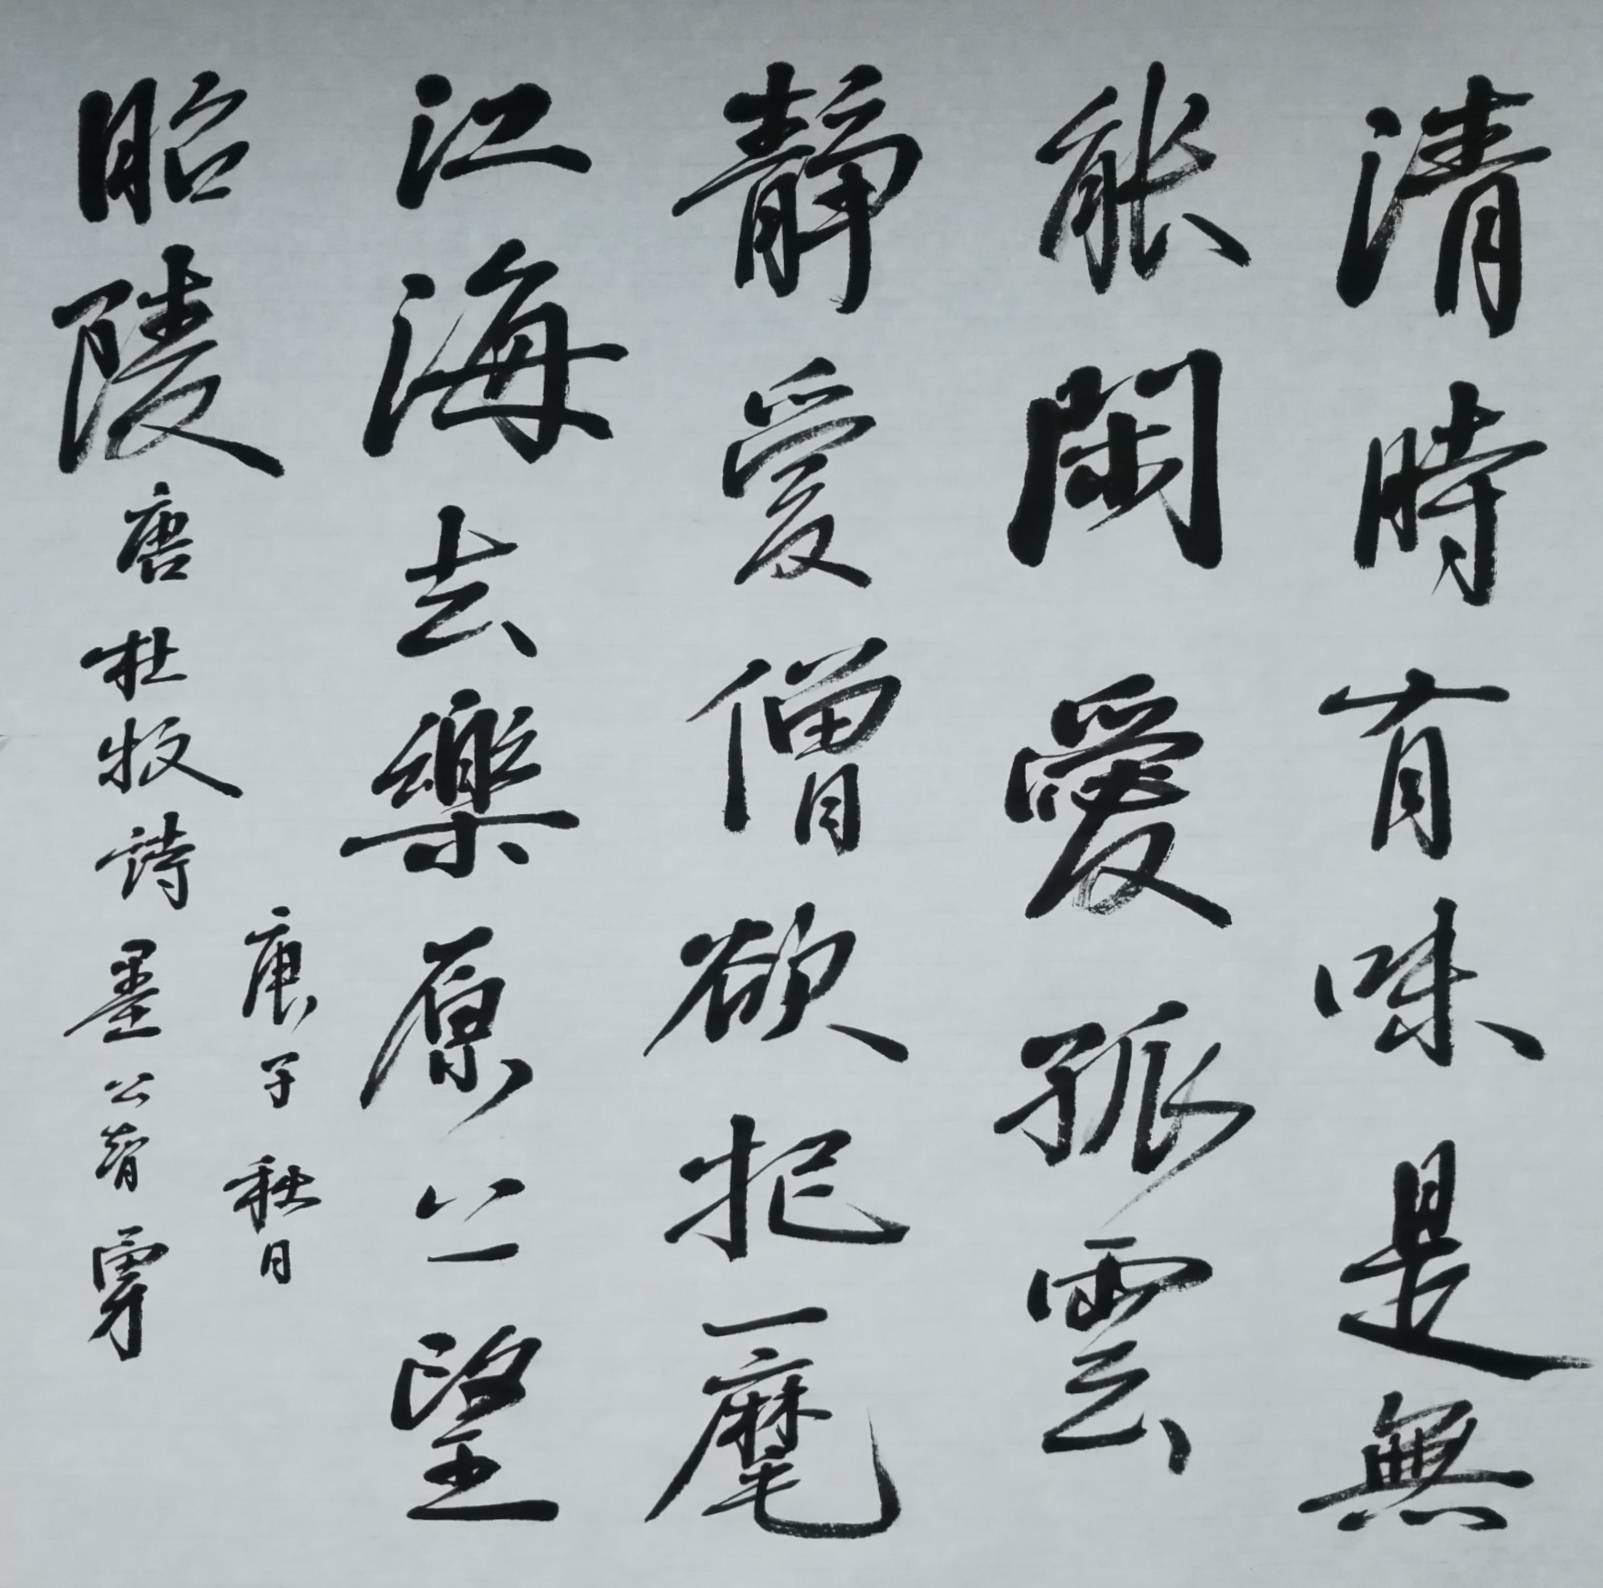 清時有味是無
能閑愛孤雲
静愛僧欲把一麾
江海去樂原上望
昭陵唐杜牧詩墨公
庚子秋日